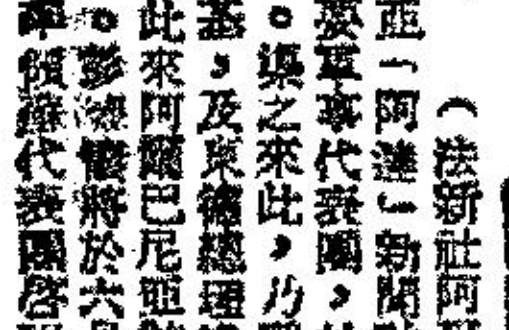 （法新社阿
亞「阿達」新聞
要軍事代表團，
。渠之來此，乃
基，及東德總理
此來阿爾巴尼亞
。彭德懷將於六月
代表團啓